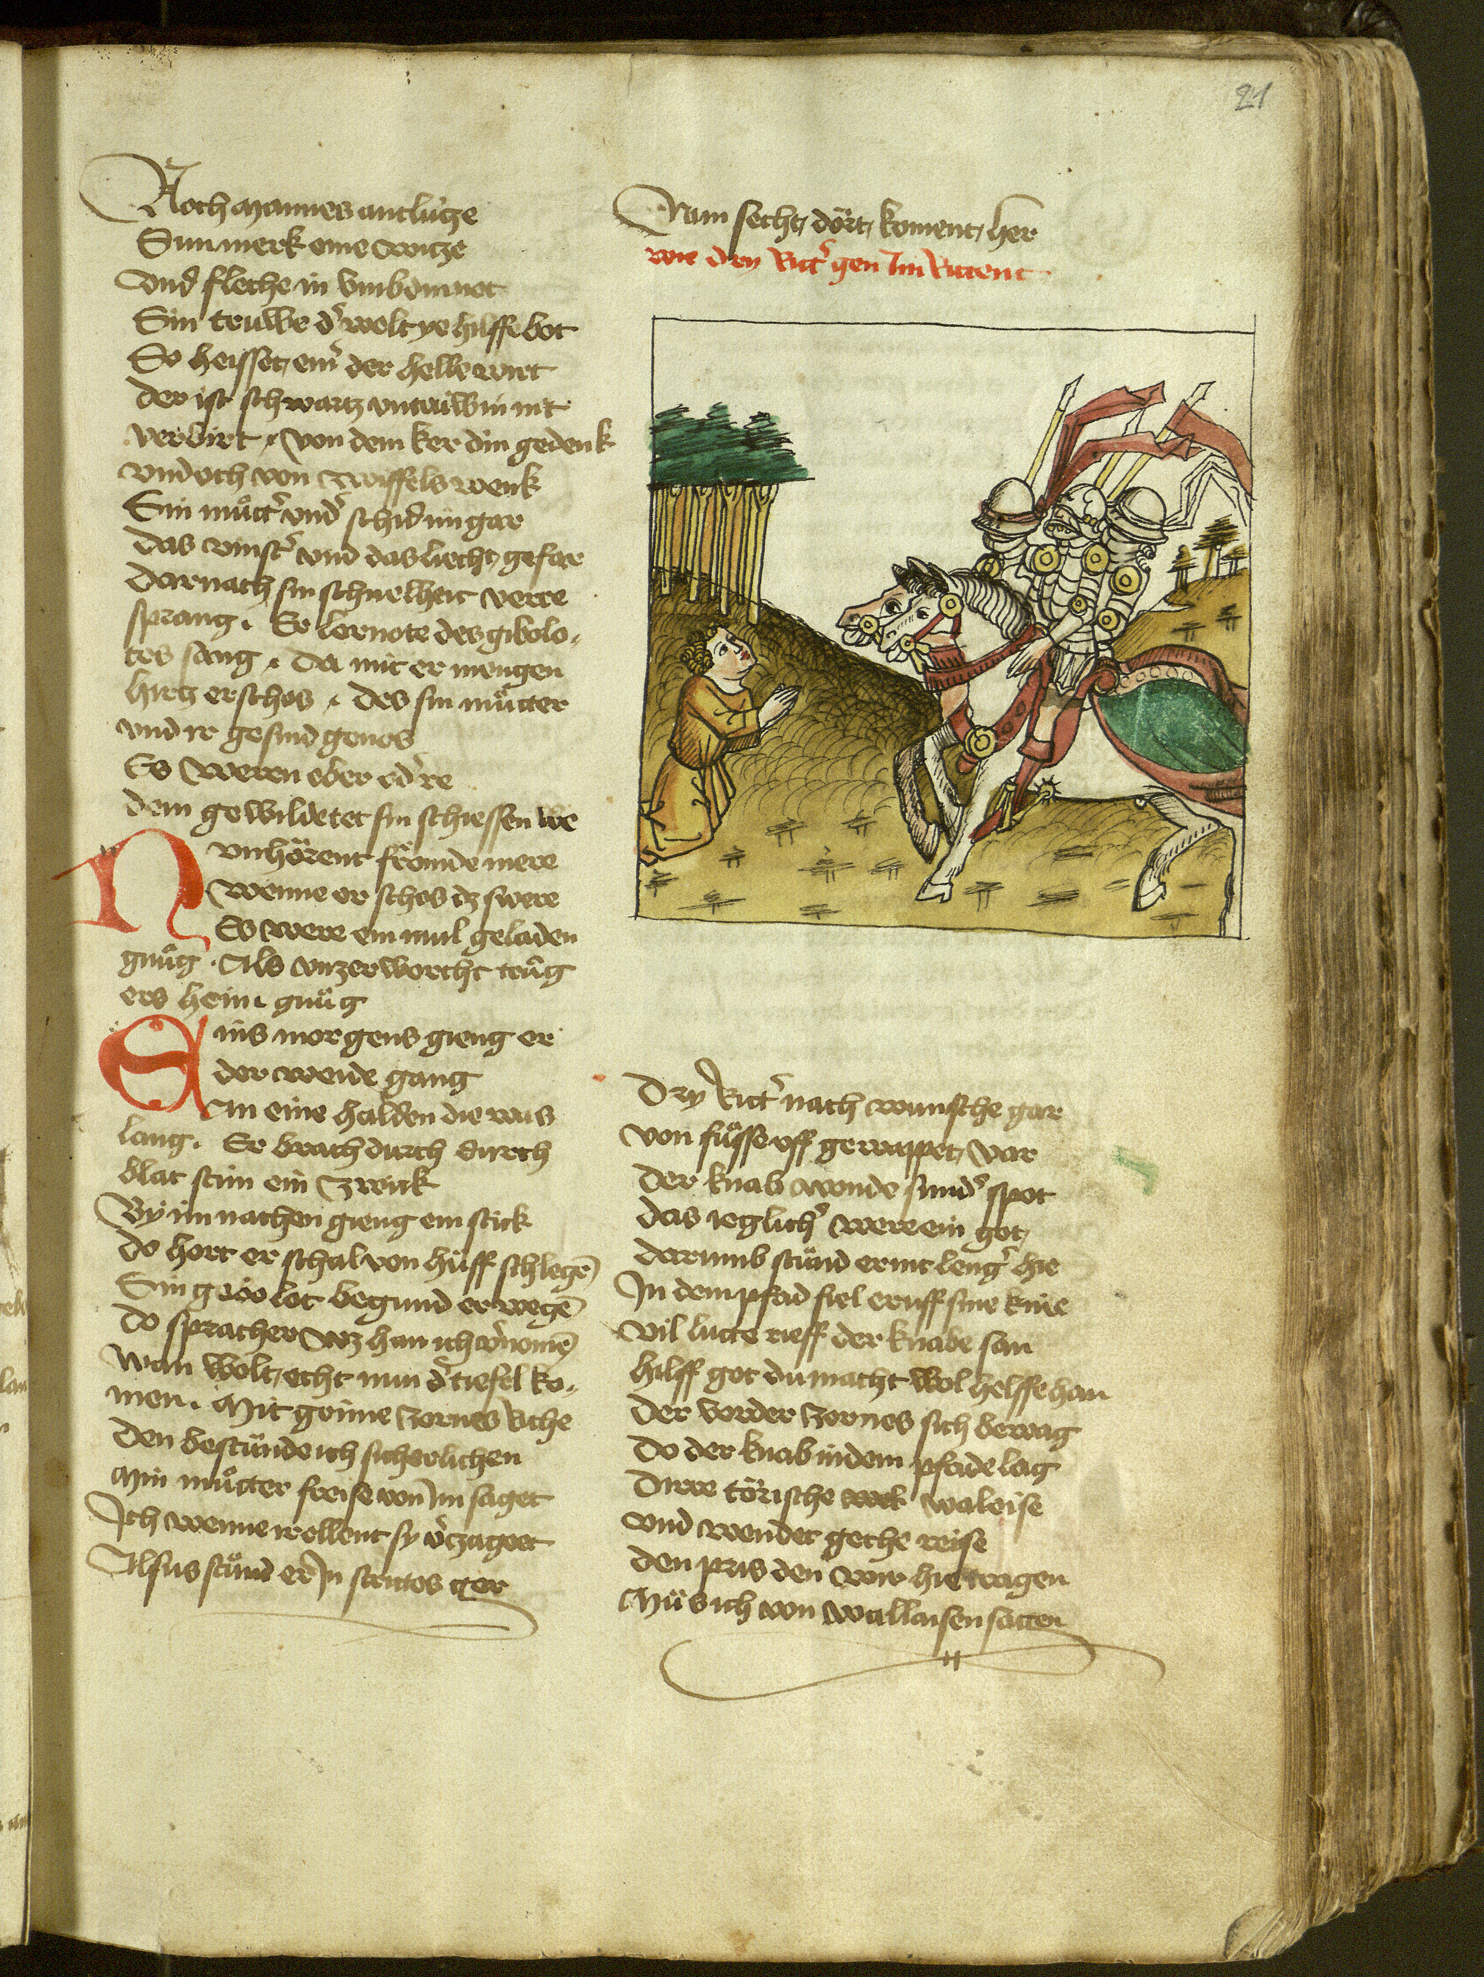 21
Noch mannes antlúze
Sun merk eine witze
Vnd fleche in vmb din not
Sin truwe d' welt ye hilffe bot
So heisset, ein' der helle wirt
Der ist schwartz vntrúw in nit
verbirt, von dem ker din gedenk
vnd och von zwiffels wenk
Sin můtt' vnd' schid im gar
das vinst' vnd das liecht gefar
Darnach sin schnelheit verre
sprang. Er lernote des gibolo,
tes swang, da mit er mengen
hirtz erschos, des sin můtter
vnd ir gesind genos
Es weren eber od're
dem gewildetet sin schiessen we
N vn hörent frömde mere
wenne er schos dz swere
Es were ein mul geladen
gnůg. Als vnzerworcht trůg
ers heim gnůg
Eins morgens gieng er
der weide gang
An eine halden die was
lang. Er brach durch durch
blat stim ein zwick
By im nachen gieng ein stick
do hort er schal von hůff schlegē
Sin gabilot begund er wegē
do sprach er wz han ich v'nomē
wan wolt, echt nun d' tiefel ko,
men. Mit grime zornes kliche
Den bestünde ich sicherlichen
Min můtter freise von Im saget
Ich wenne ir ellent sy v'zaget
Alsus stůnd er In strites ger
Nam secht, dört, koment, her
wie dry Ritt' gen Im Rittent
Dry Ritt' nach wunsche gar
von fůsse vff gewappet, var
Der knab wonde sund' spot
das ieglich' were ein got,
darumb stůnd er nit leng' hie
In dem pfad fiel er vff sine knie
vil lutte rieff der knabe san
hilff got du macht wol helffe han
Der vorder zornes sich bewag
Do der knab in dem pfade lag
Dirre törische waleise
vnd wendet geche reise
den pris den wir hie tragen
Můs ich von wallaisen sagen